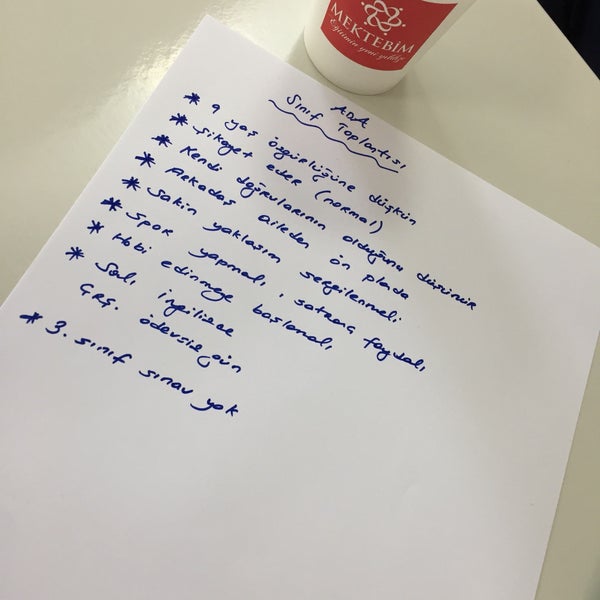 MEKTEBİM
Eğitimin yeni yıldızı
ADA
Sınıf Toplantısı
* 9 yaş özgürlüğüne düşkün
* Şikayet eder (normal)
* Kendi doğrularının olduğunu düşünür
* Arkadaş aileden ön planda
* Sakin yaklaşım sergilenmeli
* Spor yapmalı, satranç faydalı
* Hobi edinmeye başlamalı
* Salı ingilizce
Çrş. ödevsiz gün
* 3. sınıf sınav yok